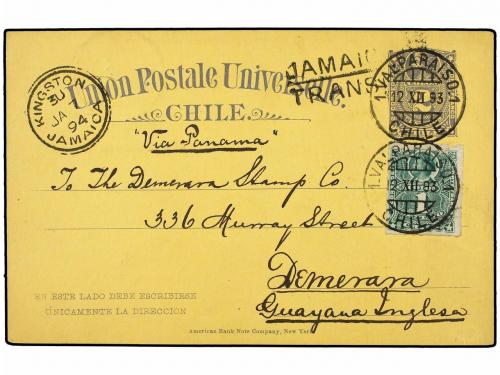 Union Postale Universelle.
CHILE.
JAMAIC
TRANS
KINGSTON
JA
94
JAMAICA
1.VALPARAISO.1
12 XII 93
CHILE
"Via Panama"
1.VALPARAIS
12 XII 93
CHILE
To The Demerara Stamp Co.
336 Murray Street
Demerara
Guayana Inglesa
EN ESTE LADO DEBE ESCRIBIRSE
ÚNICAMENTE LA DIRECCION
American Bank Note Company, New York